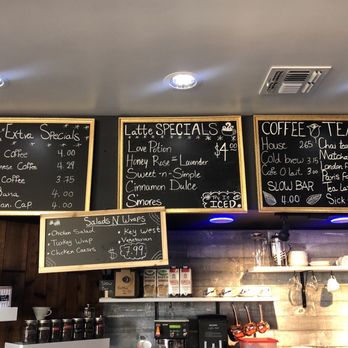 Extra Specials
Coffee 4.00
Coffee 4.29
Coffee 3.75
4.00
Cap. 4.00
Latte SPECIALS
Love Potion $4.00
Honey Rose Lavender
Sweet-n-Simple
Cinnamon Dulce
Smores
ICED
COFFEE TEA
House 2.65
Cold brew 3.15
Cafe O lait 3.00
SLOW BAR
4.00
Chai tea
Matcha
London F
Paris F
Tea La
Salads N Wraps
• Chicken Salad
• Turkey Wrap
• Chicken Caesars
• Key West
• Vegetarian
$7.99